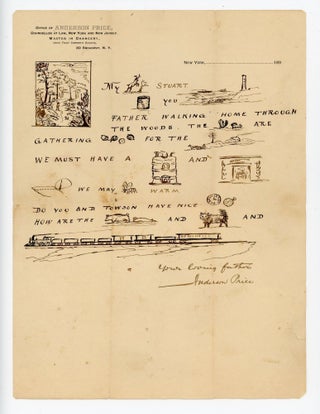 OFFICE OF ANDERSON PRICE,
COUNSELLOR AT LAW, NEW YORK AND NEW JERSEY.
MASTER IN CHANCERY,
NEW YORK, 189
MY STUART
YOU
FATHER WALKING HOME THROUGH
THE WOODS. THE ARE
GATHERING FOR THE
WE MUST HAVE A AND
WE MAY WARM
DO YOU AND TOWSON HAVE NICE
HOW ARE THE AND AND
Your loving father
Anderson Price